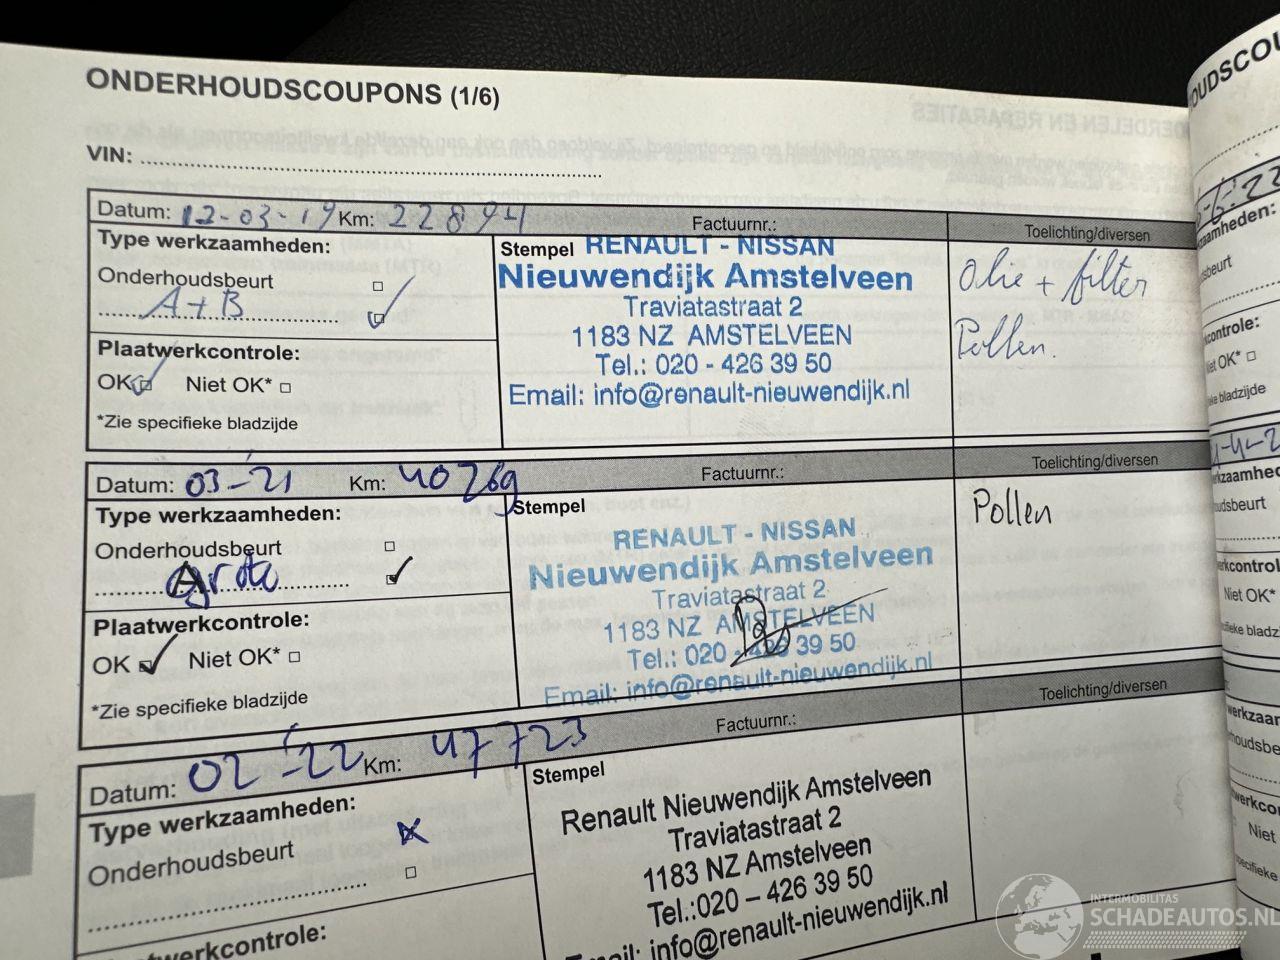 ONDERHOUDSCOUPONS (1/6)
VIN:
Datum: 12-03-19 Km: 22894 Factuurnr.: Toelichting/diversen
Type werkzaamheden:
Onderhoudsbeurt
A+B
Plaatwerkcontrole:
OK Niet OK*
*Zie specifieke bladzijde
Stempel
RENAULT - NISSAN
Nieuwendijk Amstelveen
Traviatastraat 2
1183 NZ AMSTELVEEN
Tel.: 020 - 426 39 50
Email: info@renault-nieuwendijk.nl
Olie + filter
Pollen.
Datum: 03-21 Km: 40269 Factuurnr.: Toelichting/diversen
Type werkzaamheden:
Onderhoudsbeurt
Plaatwerkcontrole:
OK Niet OK*
*Zie specifieke bladzijde
Stempel
RENAULT - NISSAN
Nieuwendijk Amstelveen
Traviatastraat 2
1183 NZ AMSTELVEEN
Tel.: 020 - 426 39 50
Email: info@renault-nieuwendijk.nl
Pollen
Datum: 02-'22 Km: 47723 Factuurnr.: Toelichting/diversen
Type werkzaamheden:
Onderhoudsbeurt
werkcontrole:
Stempel
Renault Nieuwendijk Amstelveen
Traviatastraat 2
1183 NZ Amstelveen
Tel.:020 – 426 39 50
Email: info@renault-nieuwendijk.nl
INTERMOBILITAS
SCHADEAUTOS.NL